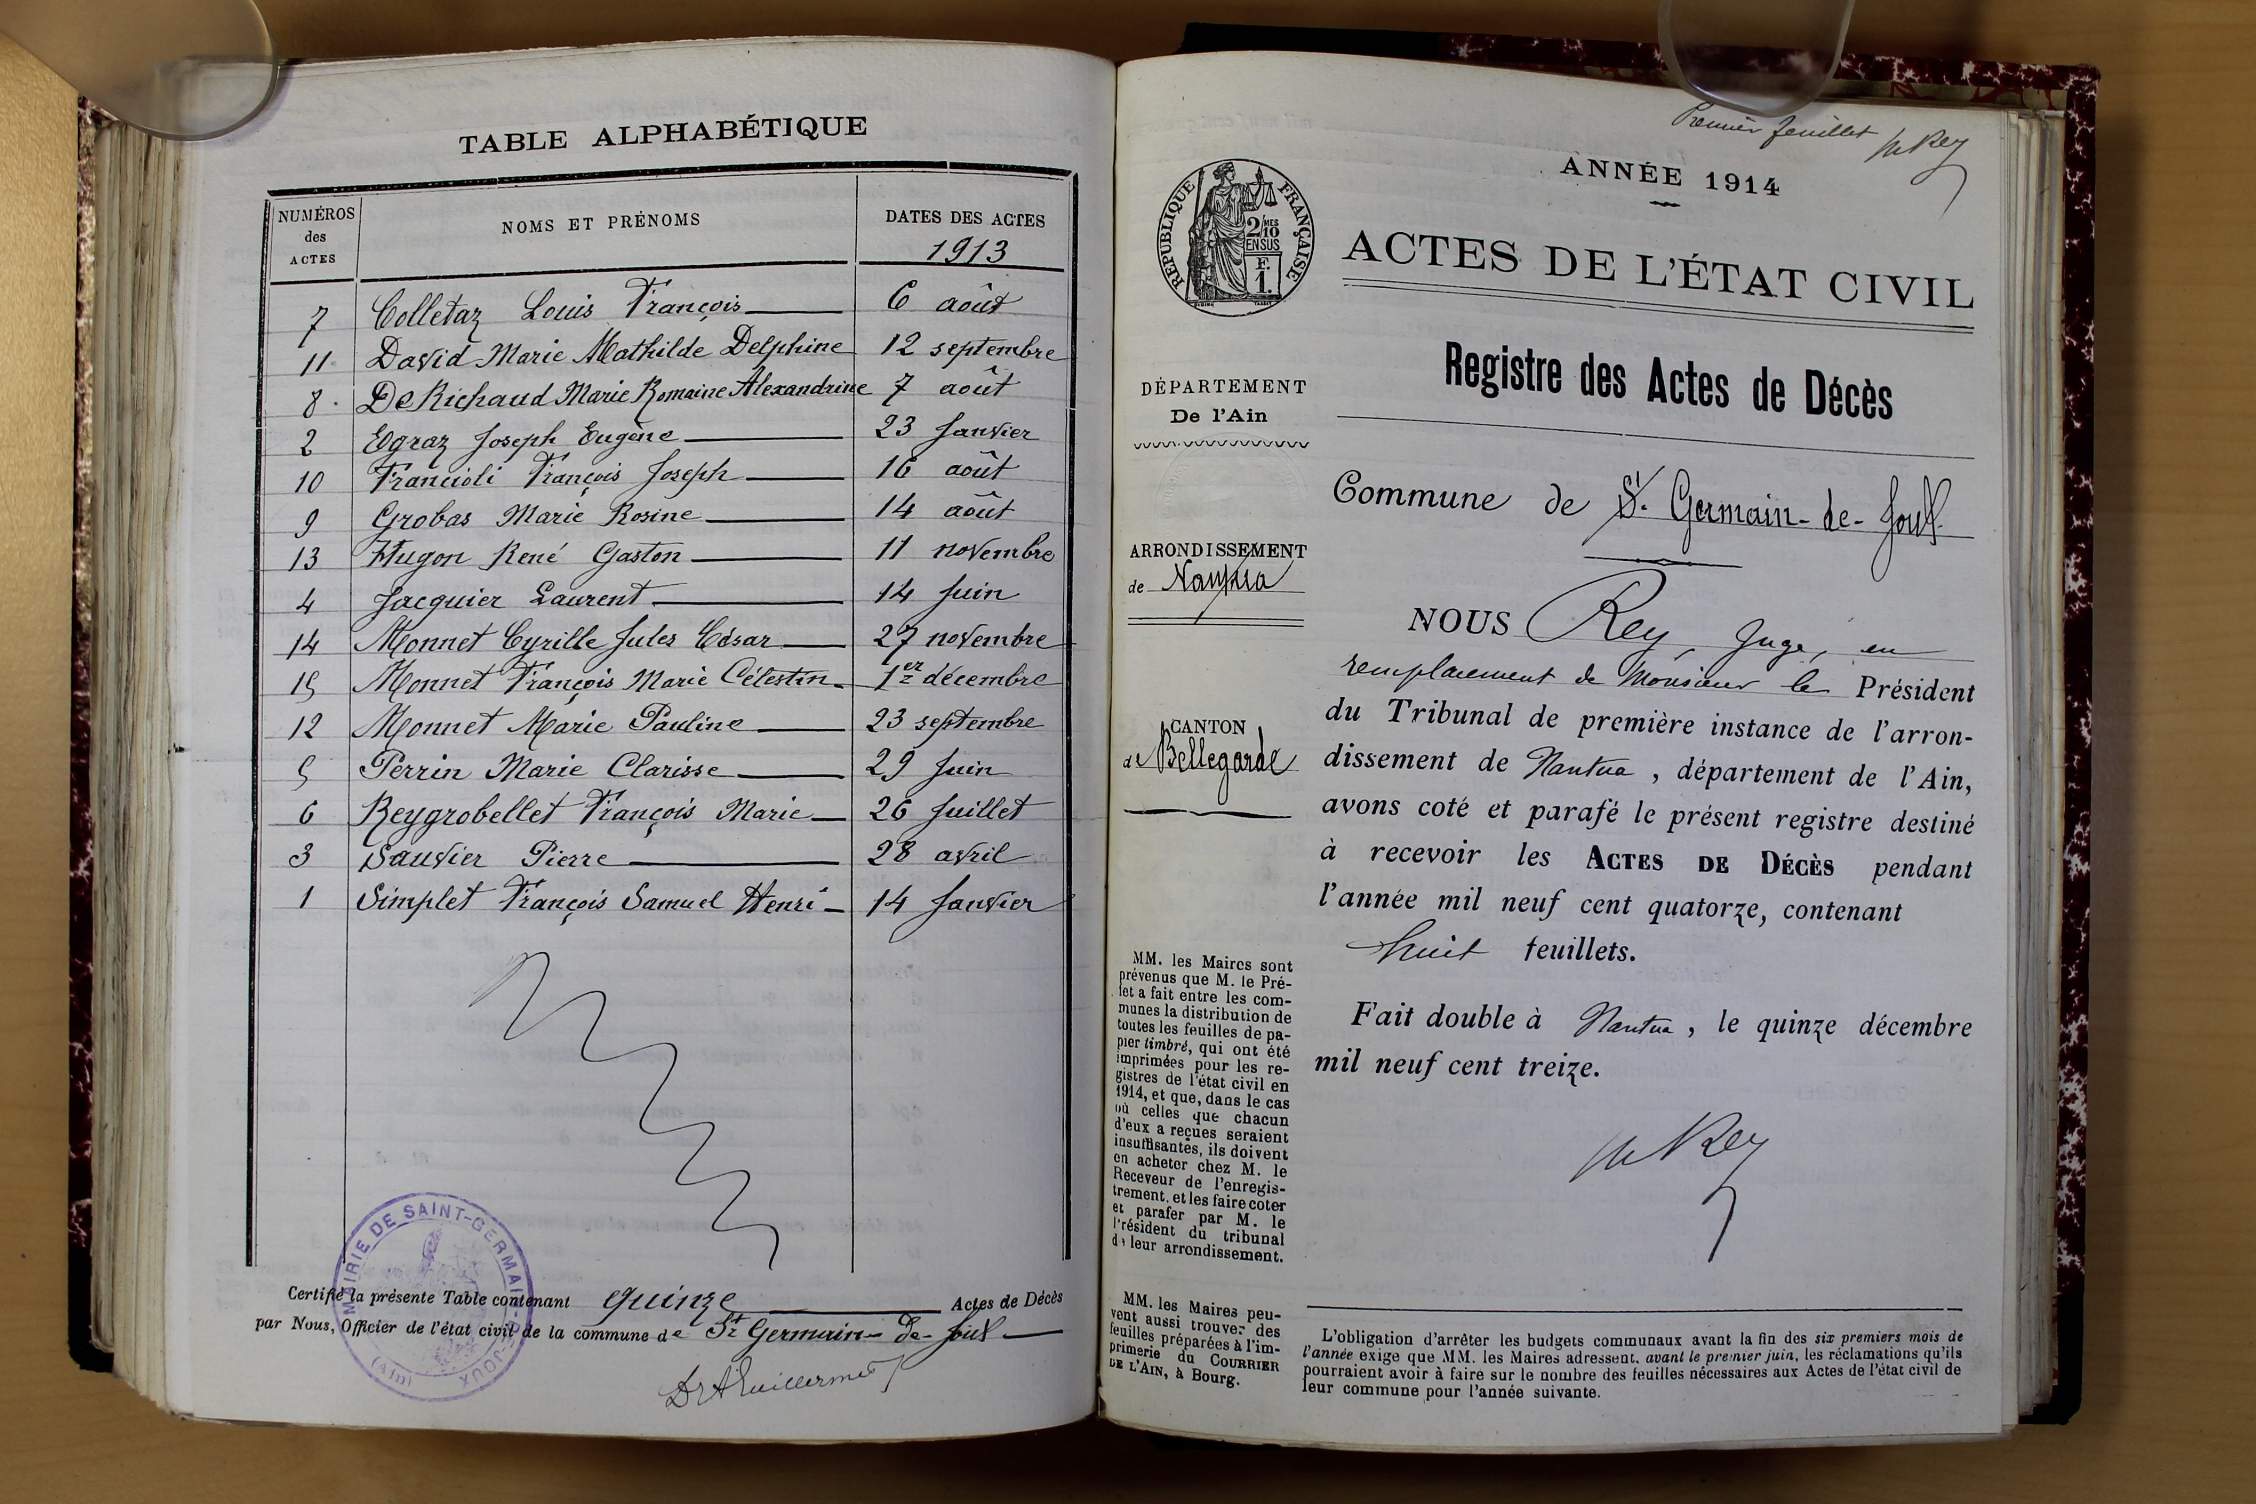 TABLE ALPHABÉTIQUE
NUMÉROS des ACTES
NOMS ET PRÉNOMS
DATES DES ACTES
1913
7 Colletaz Louis François 6 août
11 David Marie Mathilde Delphine 12 septembre
8 De Richaud Marie Romaine Alexandrine 7 août
2 Egraz Joseph Eugène 23 Janvier
10 Francioli François Joseph 16 août
9 Grobas Marie Rosine 14 août
13 Hugon René Gaston 11 novembre
4 Jacquier Laurent 14 Juin
14 Monnet Cyrille Jules César 27 novembre
15 Monnet François Marie Célestin 1er décembre
12 Monnet Marie Pauline 23 septembre
5 Perrin Marie Clarisse 29 Juin
6 Reygrobellet François Marie 26 Juillet
3 Sauvier Pierre 28 avril
1 Simplet François Samuel Henri 14 Janvier
MAIRIE DE SAINT-GERMAIN-DE-JOUX
(Ain)
Certifié la présente Table contenant quinze Actes de Décès
par Nous, Officier de l'état civil de la commune de St Germain-de-Joux
Dr A Guillermet
Premier feuillet
M Rey
ANNÉE 1914
RÉPUBLIQUE FRANÇAISE
2/10 MES
EN SUS
F.
1.
ACTES DE L'ÉTAT CIVIL
Registre des Actes de Décès
DÉPARTEMENT
De l'Ain
Commune de St. Germain-de-Joux
ARRONDISSEMENT
de Nantua
CANTON
de Bellegarde
NOUS Rey, Juge, en
remplacement de Monsieur le Président
du Tribunal de première instance de l'arron-
dissement de Nantua, département de l'Ain,
avons coté et parafé le présent registre destiné
à recevoir les ACTES DE DÉCÈS pendant
l'année mil neuf cent quatorze, contenant
huit feuillets.
Fait double à Nantua, le quinze décembre
mil neuf cent treize.
M Rey
MM. les Maires sont
prévenus que M. le Pré-
fet a fait entre les com-
munes la distribution de
toutes les feuilles de pa-
pier timbré, qui ont été
imprimées pour les re-
gistres de l'état civil en
1914, et que, dans le cas
où celles que chacun
d'eux a reçues seraient
insuffisantes, ils doivent
en acheter chez M. le
Receveur de l'enregis-
trement, et les faire coter
et parafer par M. le
Président du tribunal
de leur arrondissement.
MM. les Maires peu-
vent aussi trouver des
feuilles préparées à l'im-
primerie du COURRIER
DE L'AIN, à Bourg.
L'obligation d'arrêter les budgets communaux avant la fin des six premiers mois de
l'année exige que MM. les Maires adressent, avant le premier juin, les réclamations qu'ils
pourraient avoir à faire sur le nombre des feuilles nécessaires aux Actes de l'état civil de
leur commune pour l'année suivante.